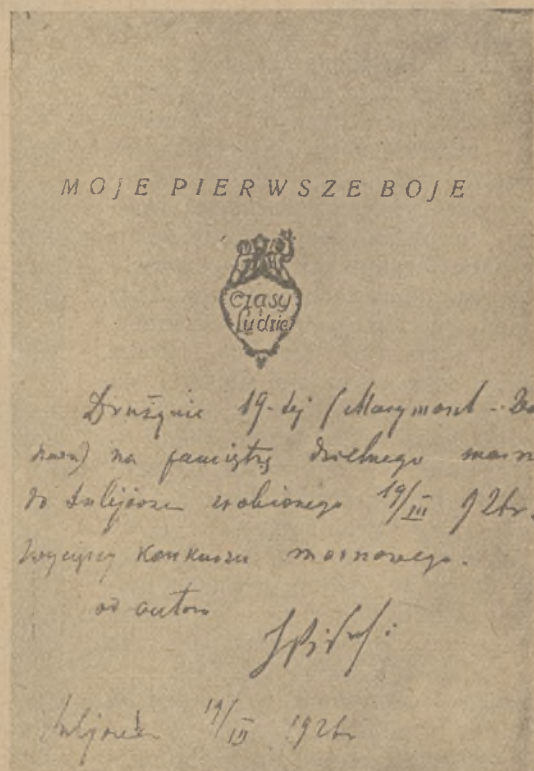 MOJE PIERWSZE BOJE
Czasy
Ludzie
Drużynie 19-tej (Marymont -
na pamiątkę dzielnego
do Sulejówka zrobionego 19/III 926r.
zwycięzcy konkursu marszowego.
od autora
JPiłsudski
Sulejówek 19/III 1926r